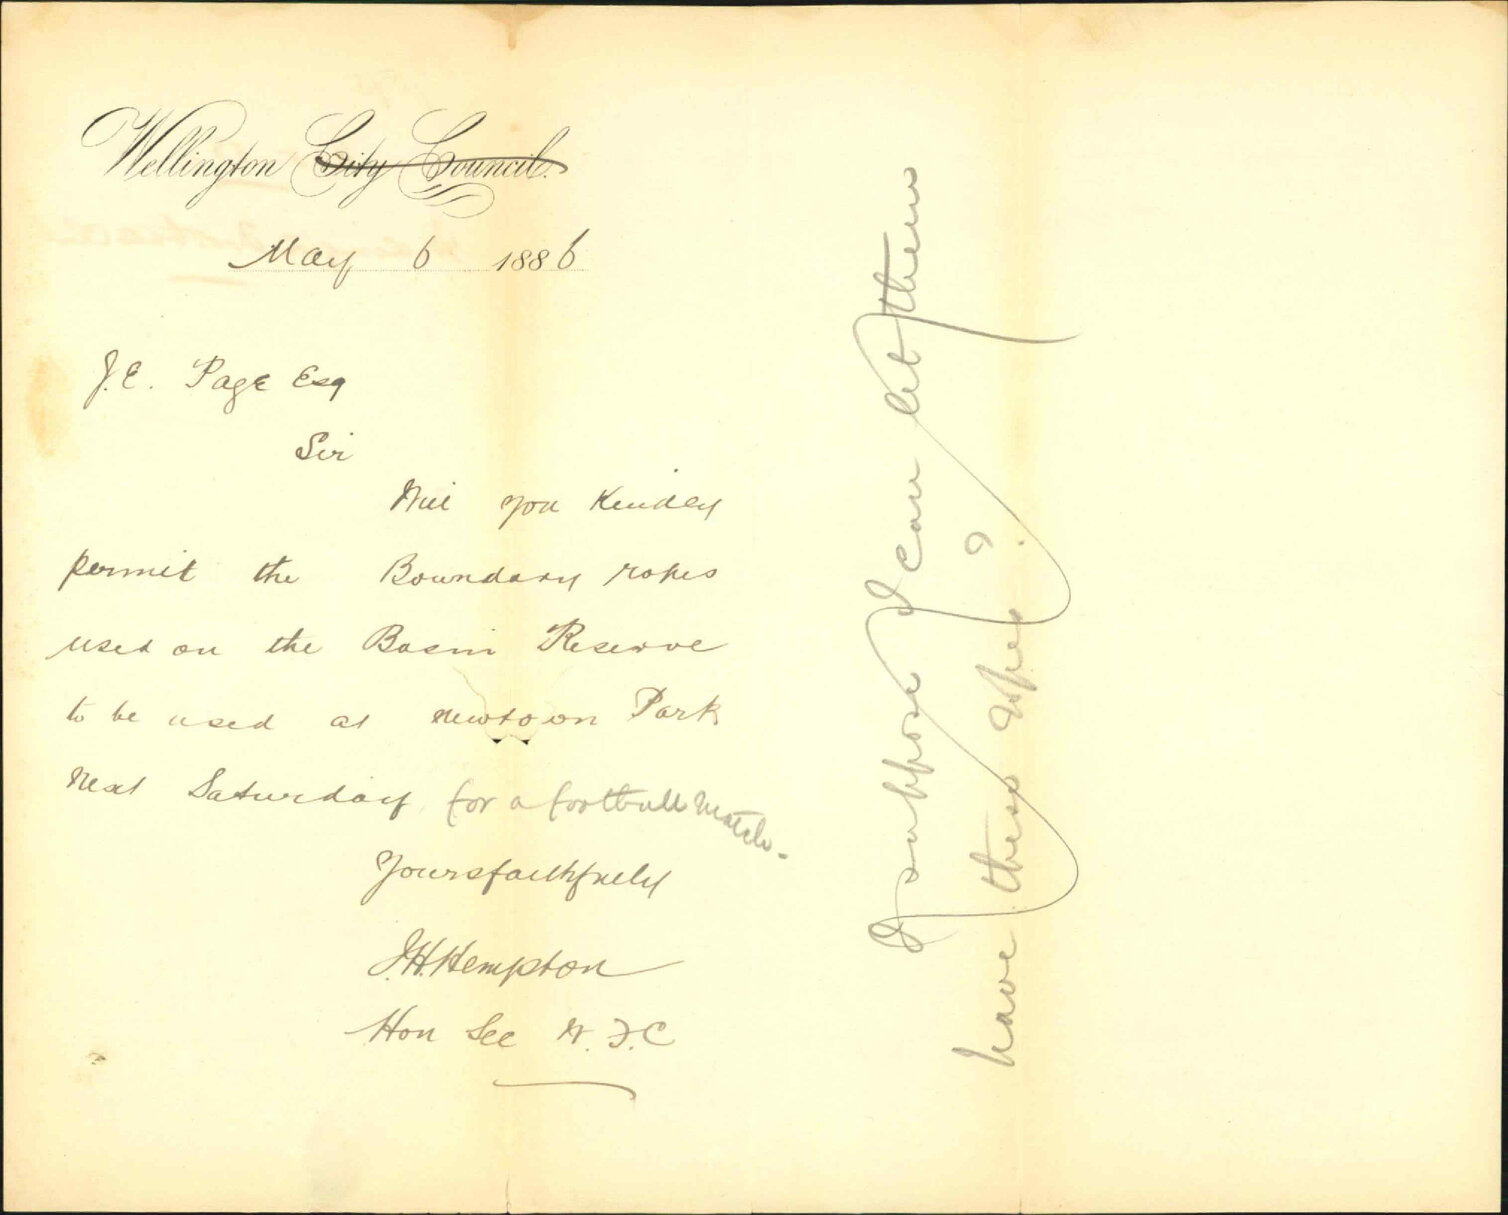 Wellington City Council.
May 6 1886
J.E. Page Esq
Sir
Will you Kindly
permit the Boundary ropes
used on the Basin Reserve
to be used at Newtown Park
Next Saturday for a football Match-
Yours faithfully
J.H. Hempton
Hon Sec W.F.C
I suppose I can let them
have these ropes?